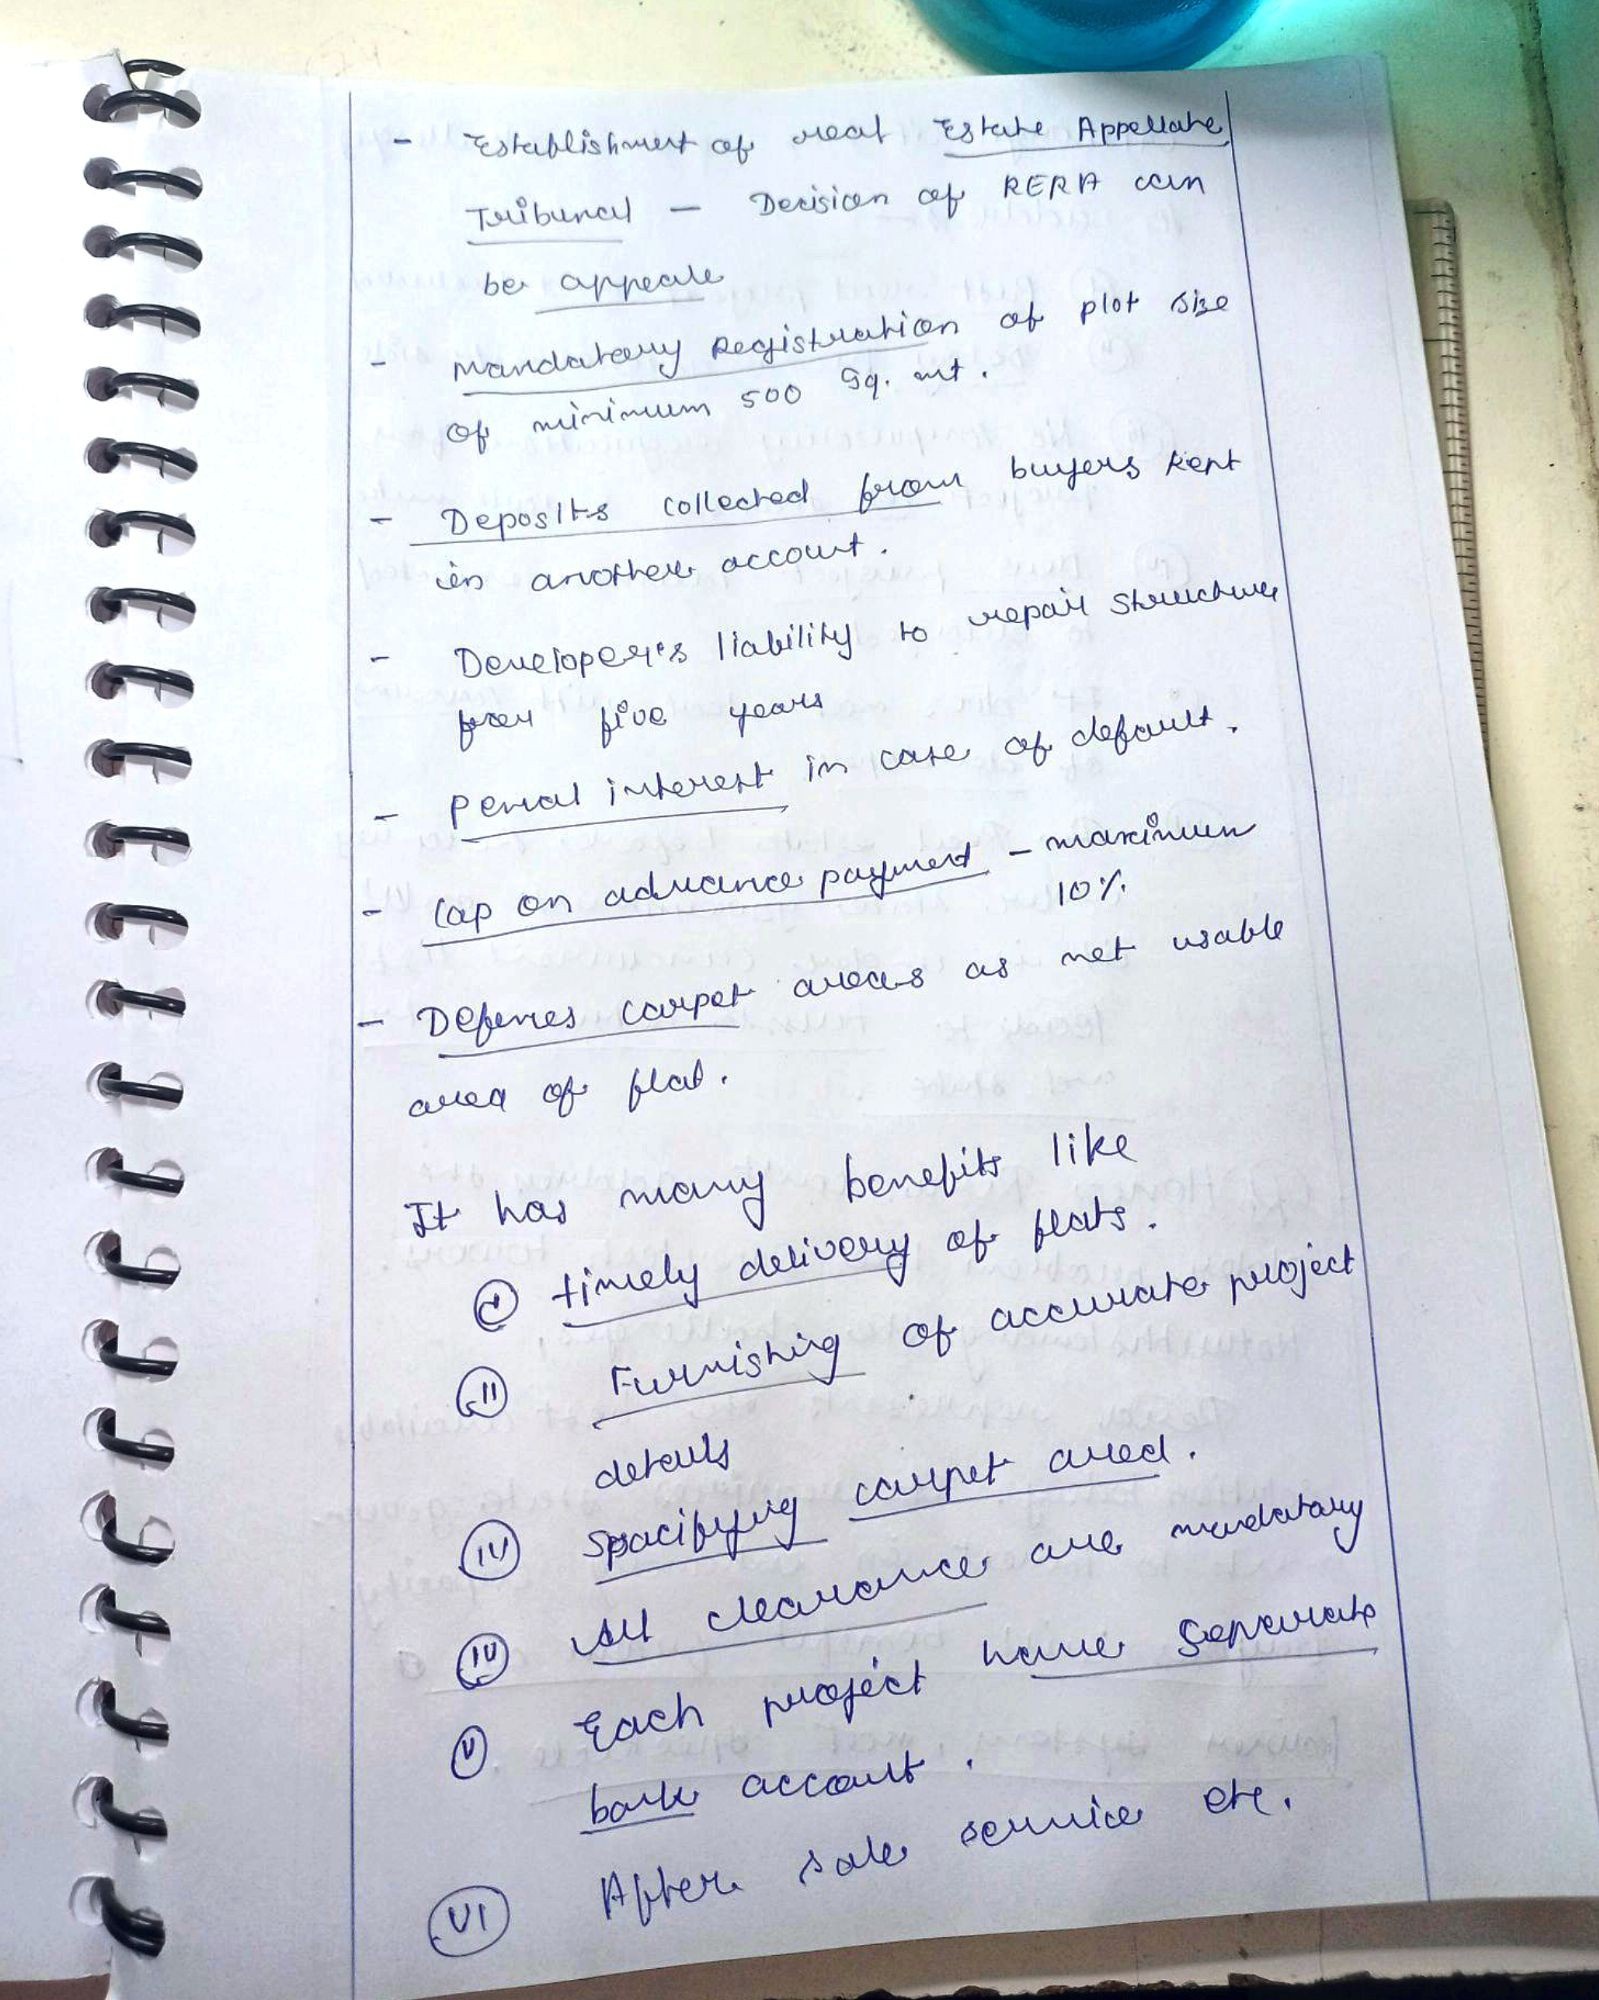 - Establishment of real Estate Appellate
Tribunal - Decision of RERA can
be appeale
- Mandatory Registration of plot size
of minimum 500 Sq. mt.
- Deposits collected from buyers kept
in another account.
- Developer's liability to repair structure
for five years
- Penal interest in case of default.
- Cap on advance payment - maximum
10%.
- Defines carpet areas as net usable
area of flat.
It has many benefits like
I timely delivery of flats.
II Furnishing of accurate project
details
IV Spacifying carpet area.
IV All clearance are mandatory
V Each project have separate
bank account.
VI After sale service etc.